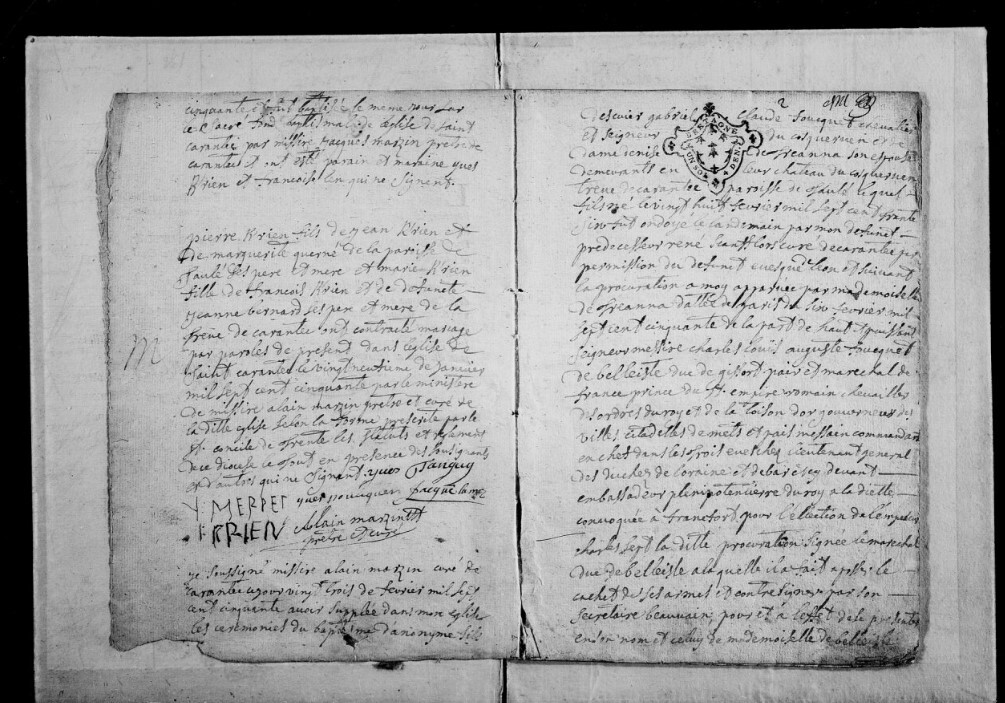 cinquante et fut baptisé le meme jour sur
le sacré fond baptismal de leglise de saint
carantec par missire jacques marzin pretre de
carantec et ont esté parain et maraine yves
K/rien et francoise qui ne signent
pierre K/rien fils de jean K/rien et
de marguerite querné de la paroisse de
taulé ses pere et mere et marie K/rien
fille de francois K/rien et de defunete
jeanne bernard ses pere et mere de la
treve de carantec ont contracté mariage
par paroles de present dans leglise de
saint carantec le vingt neufieme de janvier
mil sept cent cinquante par le ministere
de missire alain marzin pretre et curé de
la ditte eglise selon la forme prescrite par le
st. concile de trente les statuts et reglemens
de ce diocese le tout en presence des soussignants
et dautres qui ne signent yves tanguy
Y MERDEL yves jacque
I: KRIEN Alain marzin
pretre et curé
M
je soussigné missire alain marzin curé de
carantec ce jour vingt trois de fevrier mil sept
cent cinquante avoir supplée dans mon eglise
les ceremonies du baptesme danonyme fils
2
descuier gabriel claude foucquet chevalier
et seigneur du cosquerven et de
dame denise de Kreanna son epouse
demeurants en leur chateau du cosquerven
treve de carantec paroisse de taulé lequel
fils né le vingt huit fevrier mil sept cent trante
six fut ondoyé le landemain par mon defunet
predecesseur rené curé de carantec par
permission du defunet evesque de leon et suivant
la procuration a moy apparuee par mademoiselle
de Kreanna datté de paris du six fevrier mil
sept cent cinquante de la part de haut et puissant
seigneur messire charles louis auguste foucquet
de belleisle duc de gisort pair et marechal de
france prince du st. empire romain chevallier
des ordres du roy et de la toison dor gouverneur des
villes citadelles de mets et pais messain commandant
en chef dans les trois eveschez lieutenant general
des duchez de loraine et de bar cy devant
embassadeur plenipotentierre du roy a la diette
convoquée à francfort pour l'ellection de l'empereur
charles sept la ditte procuration signée le marechal
duc de belleisle a laquelle il a fait aposer le
cachet de ses armes et contresigner par son
secretaire beauvais pour et à l'effet de le presenter
en son nom et celuy de mademoiselle de belleisle